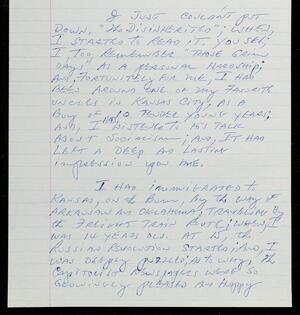 I JUST COULDN'T PUT
DOWN, "THE DISINHERITED"; WHEN,
I STARTED TO READ IT. YOU SEE,
I TOO, REMEMBER "THOSE GRIM
DAYS" AS A PERSONAL HARDSHIP;
AND, FORTUNITELY FOR ME, I HAD
BEEN AROUND ONE OF MY FAVORITE
UNCLES IN KANSAS CITY, AS A
BOY OF 10 TENDER YOUNG YEARS;
AND, I HAD LISTENED TO HIS TALK
ABOUT SOCIALISM; AND, IT HAD
LEFT A DEEP AND LASTING
IMPRESSION UPON ME.
I HAD IMMIGRATED TO
KANSAS, ON THE BUM, BY THE WAY OF
ARKANSAS AND OKLAHOMA, TRAVELING BY
THE FREIGHT TRAIN ROUTE; WHEN, I
WAS 14 YEARS OLD. AT 15, THE
RUSSIAN REVOLUTION STARTED; AND, I
WAS DEEPLY PUZZLED; AS TO WHY, THE
CAPITALIST NEWSPAPERS WERE SO
GLOWINGLY PLEASED AND HAPPY